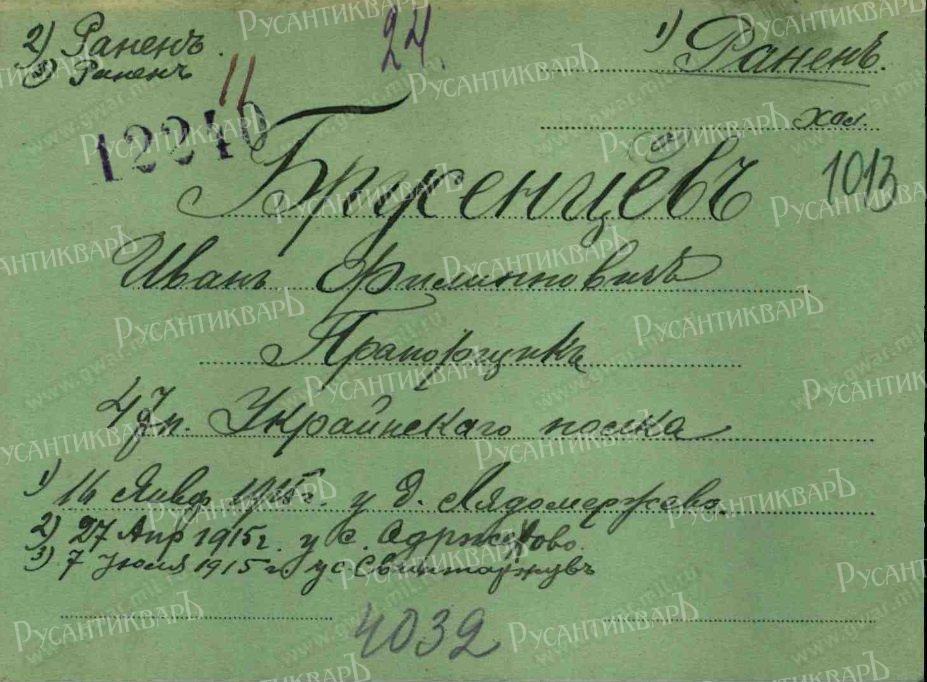 2) Раненъ.
3) Раненъ
11
24.
1) Раненъ.
хол.
12240
Бруженцёвъ
1013
Иванъ Филипповичъ
Прапорщикъ
47 п. Украйнскаго полка
1) 16 Янвр. 1915 г. у д. Лядомержево.
2) 27 Апр 1915 г. у с. Одржехово
3) 7 Июля 1915 г. у с.
4032
РусАнтикварЪ
www.gwar.mil.ru